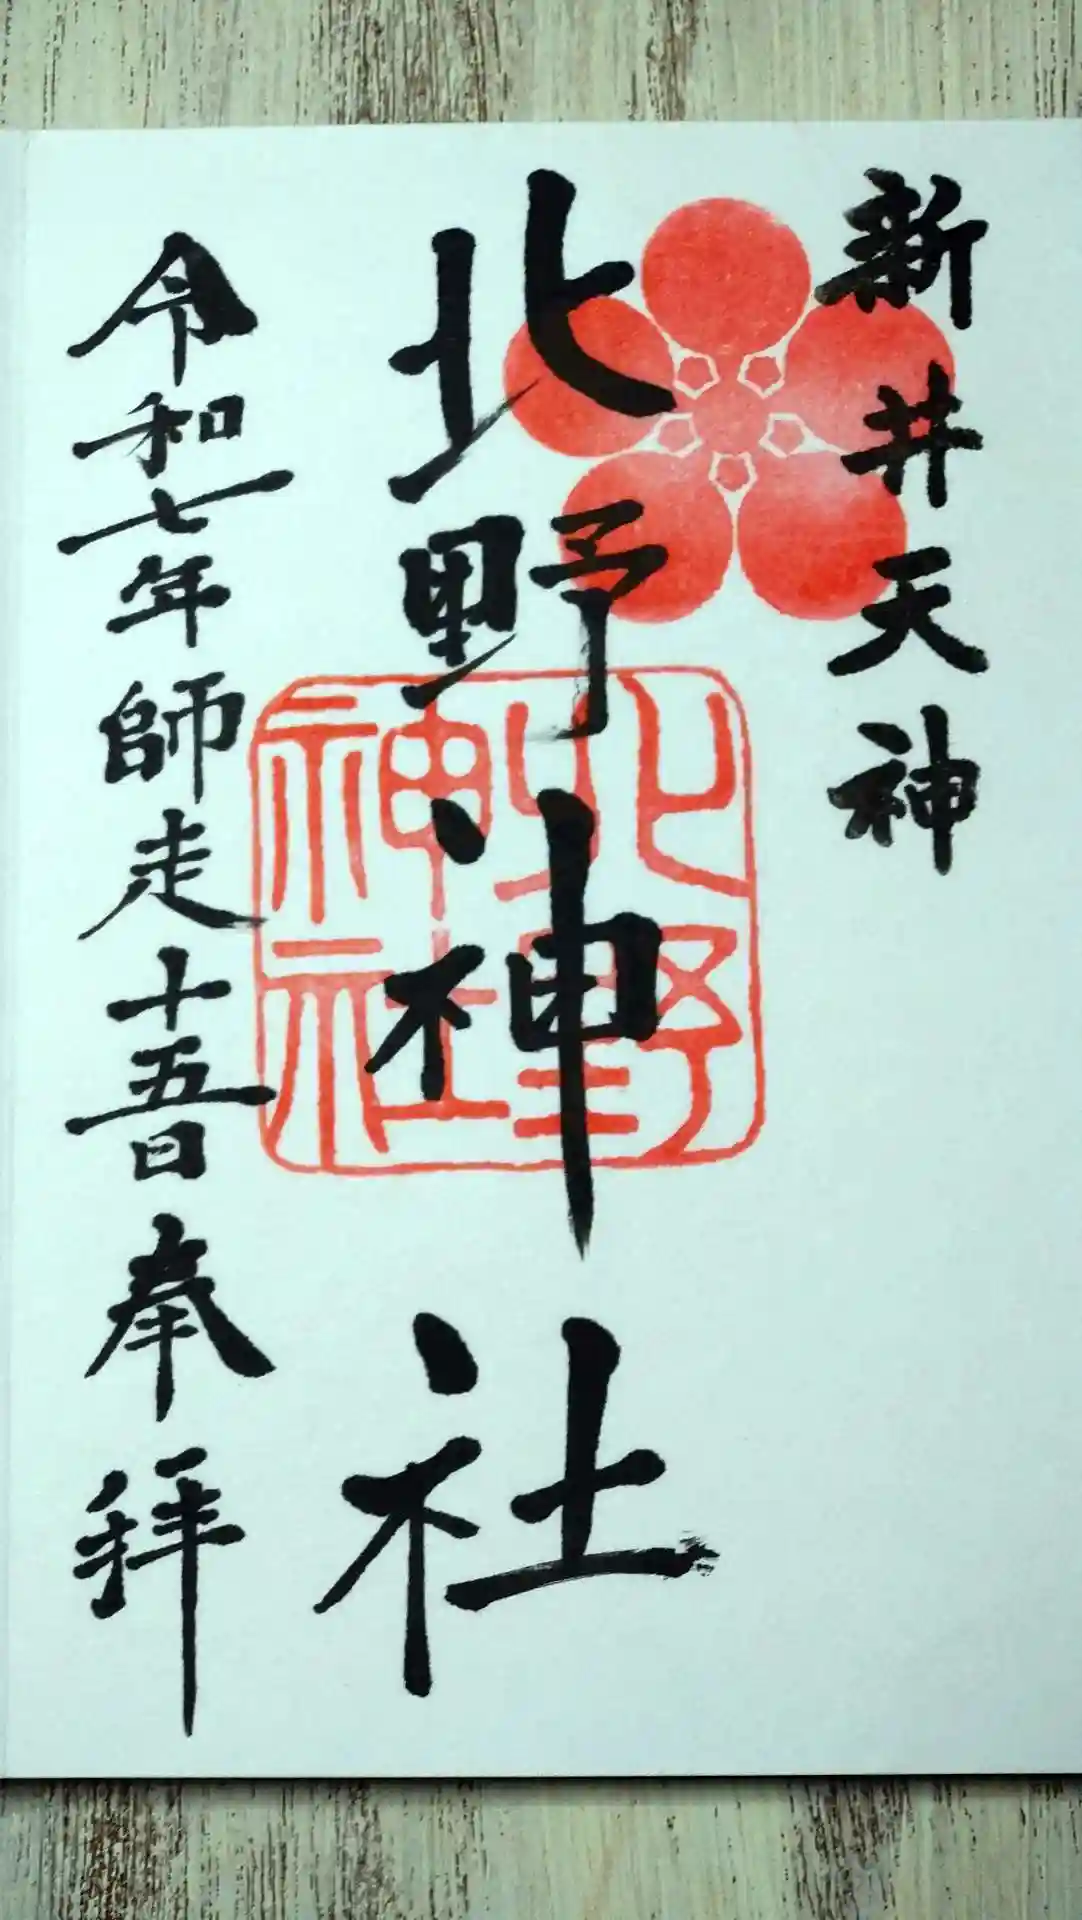 新井天神
北野神社
北野神社
令和七年師走十五日奉拝